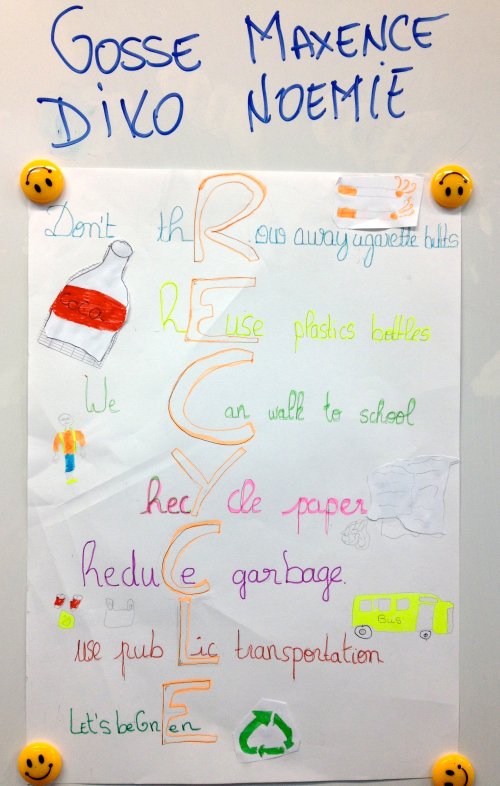 GOSSE MAXENCE
DIKO NOEMIE
Don't thRow away cigarette butts
COCA
REuse plastics bottles
We Can walk to school
RecYcle paper
ReduCe garbage.
BUS
use pubLic transportation
Let's beGrEen